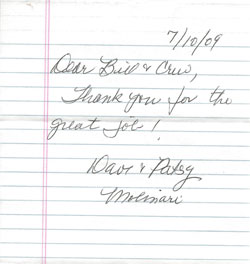 7/10/09
Dear Bill & Crew,
Thank you for the
great job!
Dave & Patsy
Molinari